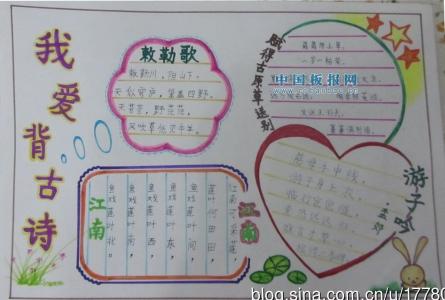 我爱背古诗
敕勒歌
敕勒川，阴山下。
天似穹庐，笼盖四野。
天苍苍，野茫茫，
风吹草低见牛羊。
赋得古原草送别
离离原上草，
一岁一枯荣。
中国板报网
萋萋满别情。
江南
江南可采莲，
莲叶何田田，
鱼戏莲叶间，
鱼戏莲叶东，
鱼戏莲叶西，
鱼戏莲叶南，
鱼戏莲叶北。
江南
游子吟
孟郊
慈母手中线，
游子身上衣。
临行密密缝，
意恐迟迟归。
谁言寸草心，
报得三春晖。
blog.sina.com.cn/u/17780